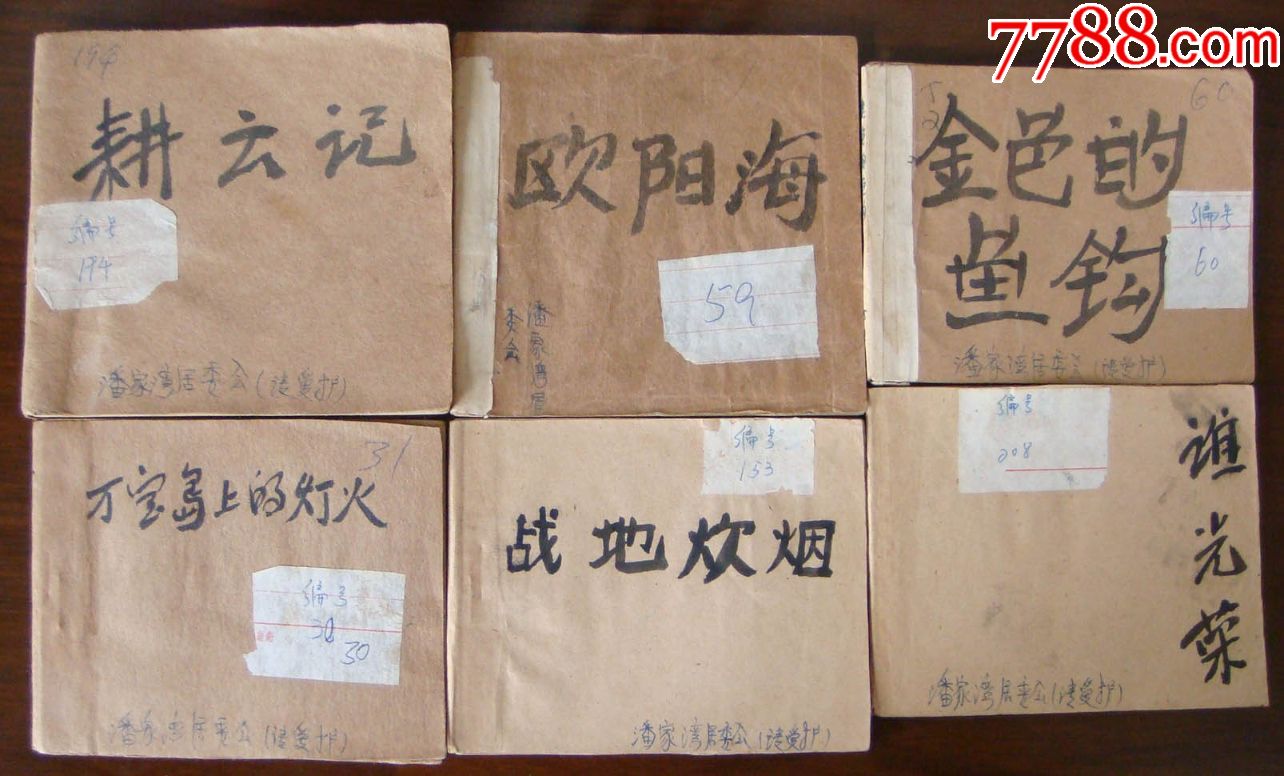 7788.com
194
耕云记
编号
194
潘家湾居委会(请爱护)
欧阳海
59
潘家湾居
委会
60
金色的
鱼钩
编号
60
潘家湾居委会(请爱护)
31
万宝岛上的灯火
编号
30
30
潘家湾居委会(请爱护)
编号
153
战地炊烟
潘家湾居委会(请爱护)
编号
208
谁光荣
潘家湾居委会(请爱护)